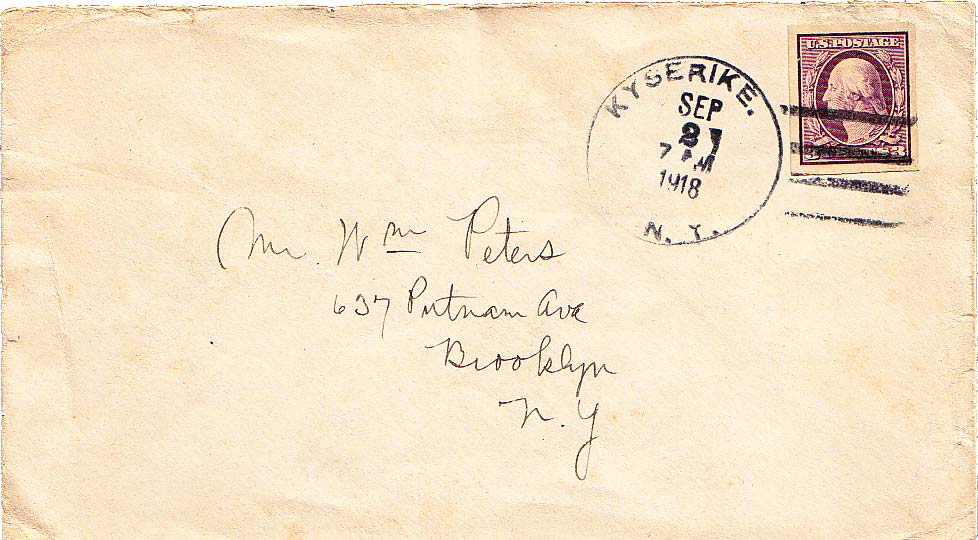 KYSERIKE.
SEP
21
7 AM
1918
N. Y.
U.S. POSTAGE
3
Mr. Wm Peters
637 Putnam Ave
Brooklyn
N. Y